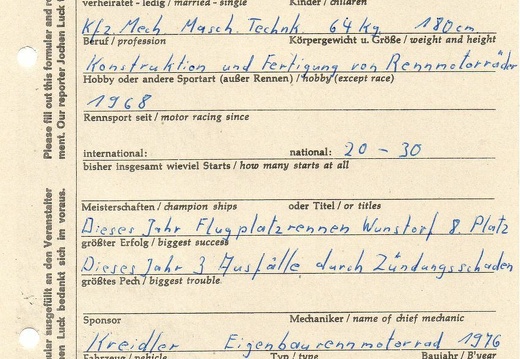 verheiratet - ledig / married - single Kinder / children
Kfz. Mech Masch. Technk. 64 Kg 180 cm
Beruf / profession Körpergewicht u. Größe / weight and height
Konstruktion und Fertigung von Rennmotorräder
Hobby oder andere Sportart (außer Rennen) / hobby (except race)
1968
Rennsport seit / motor racing since
international: national: 20 - 30
bisher insgesamt wieviel Starts / how many starts at all
Meisterschaften / champion ships oder Titel / or titles
Dieses Jahr Flugplatzrennen Wunstorf 8. Platz
größter Erfolg / biggest success
Dieses Jahr 3 Ausfälle durch Zündungsschaden
größtes Pech / biggest trouble
Sponsor Mechaniker / name of chief mechanic
Kreidler Eigenbaurennmotorrad 1976
Fahrzeug / vehicle Typ / type Baujahr / B'year
Please fill out this formular and re
ment. Our reporter Jochen Luck
ular ausgefüllt an den Veranstalter
en Luck bedankt sich im voraus.